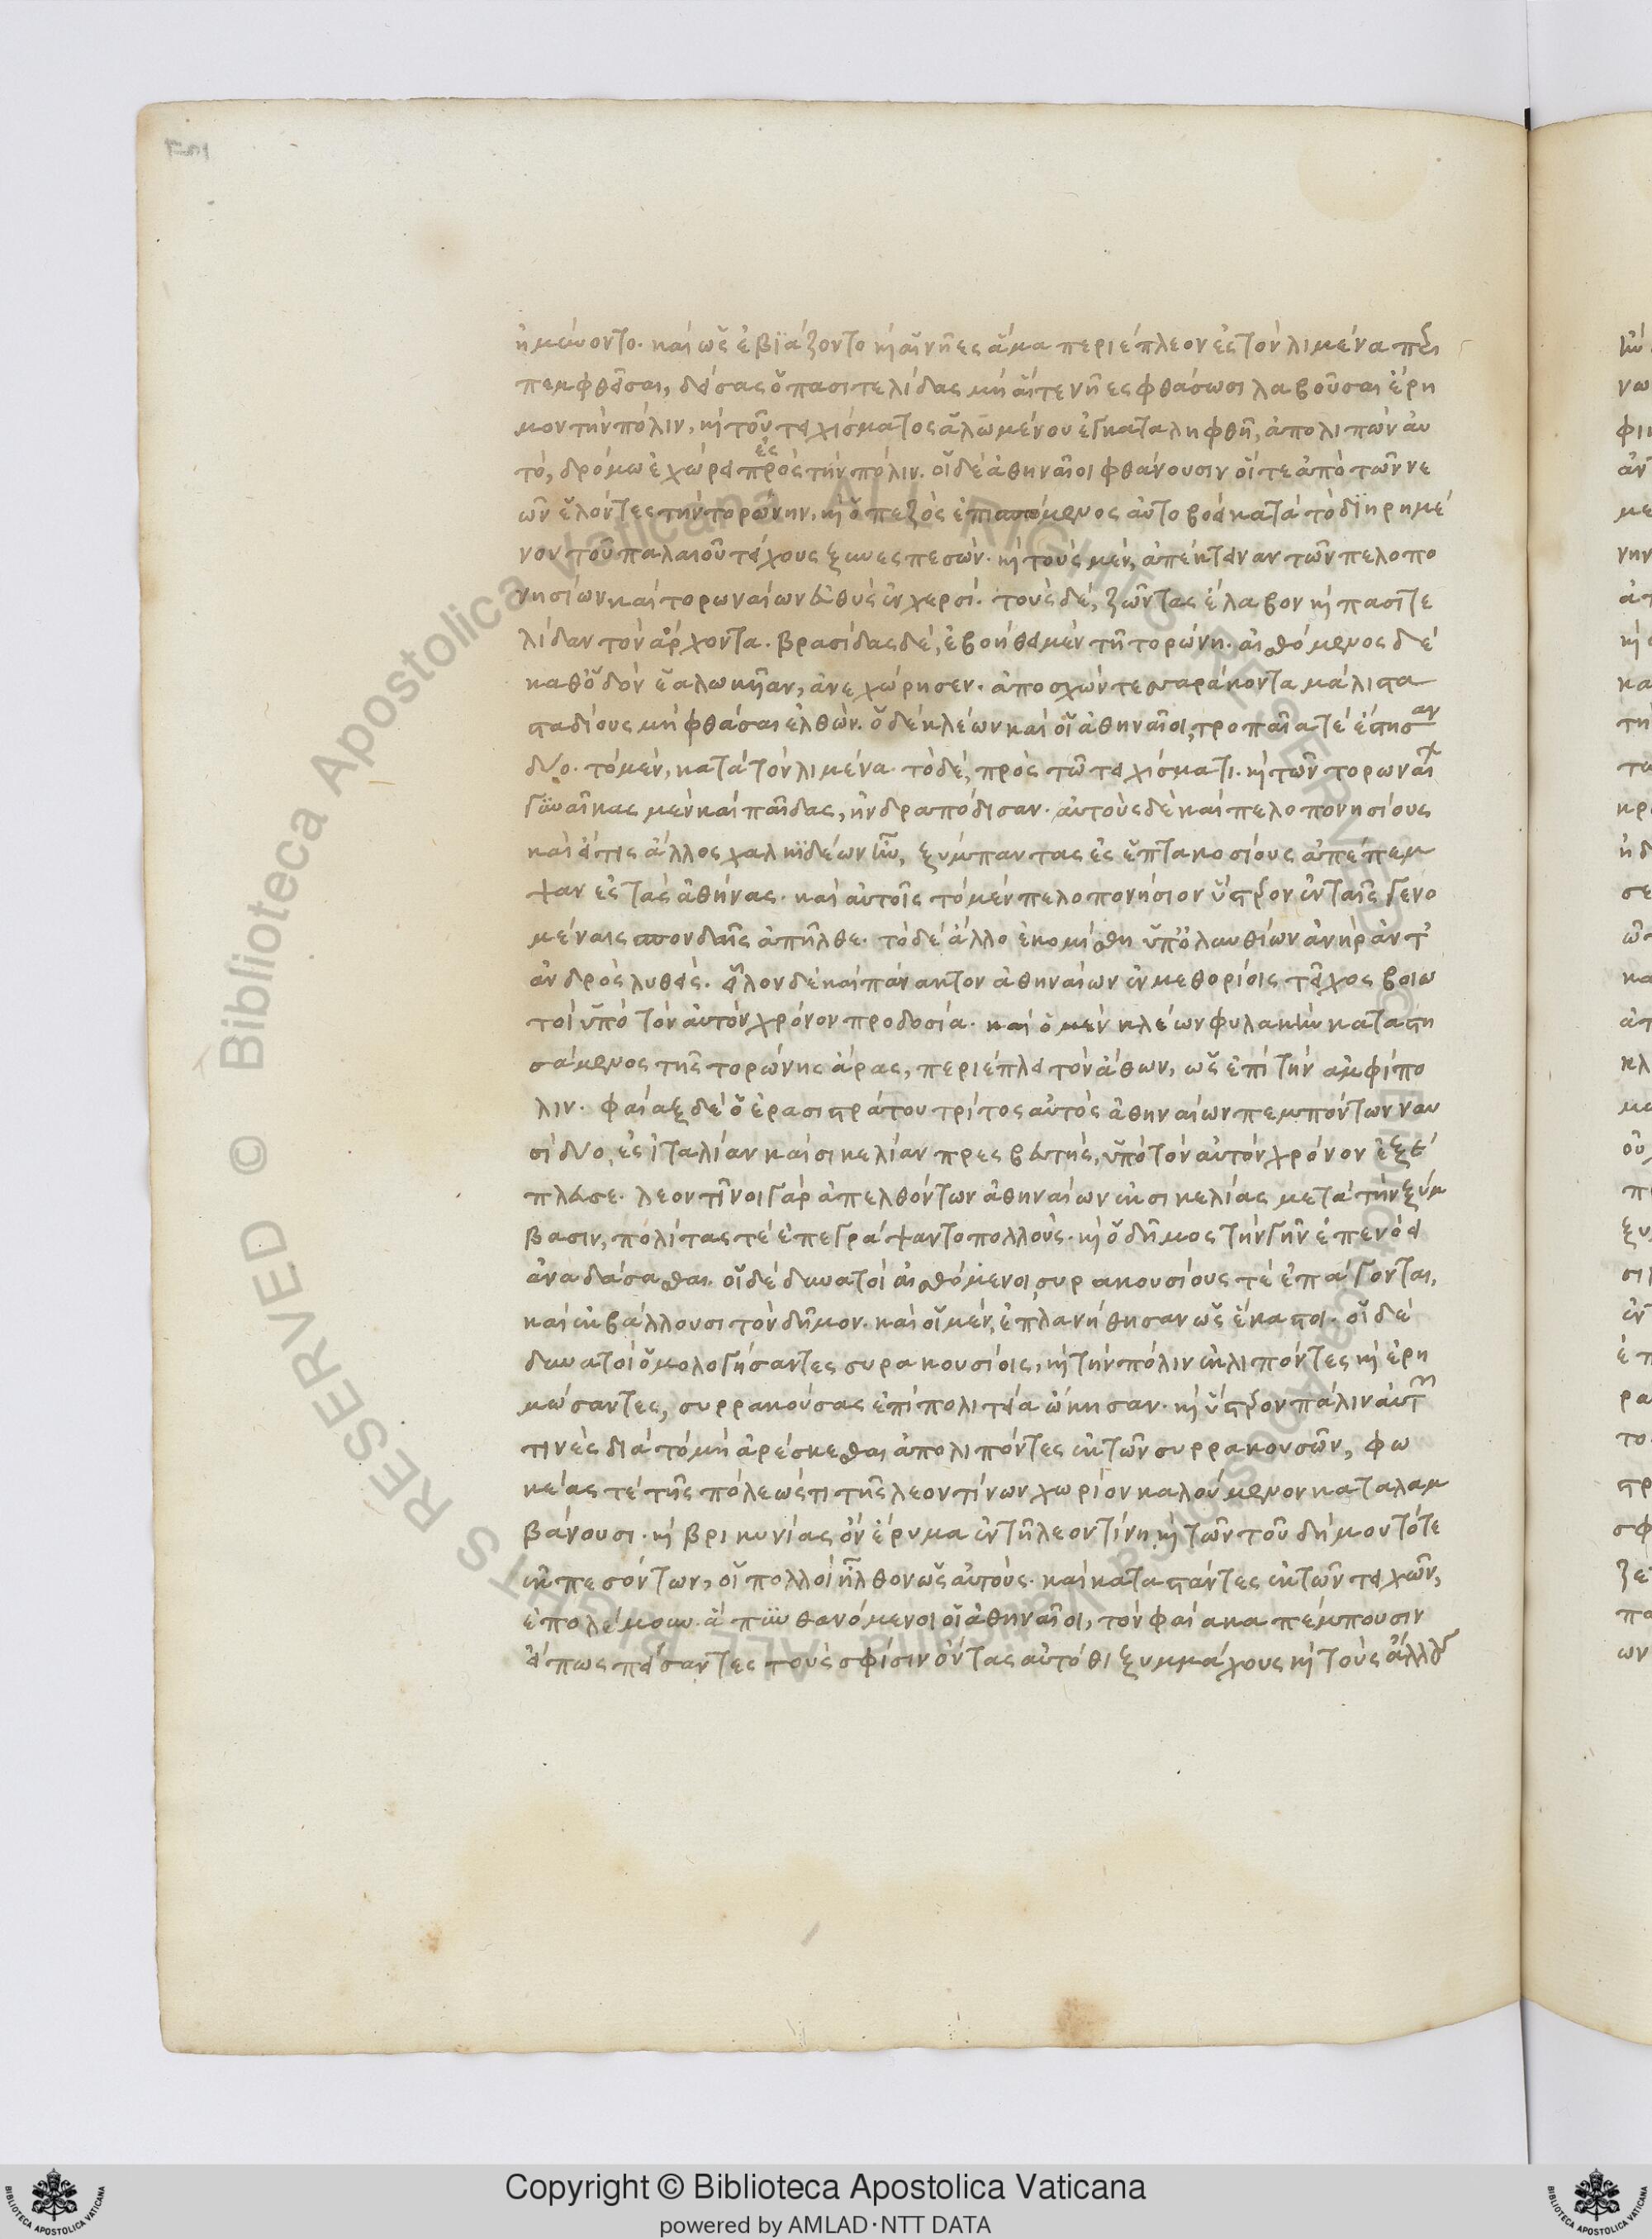 ἠμύνοντο· καὶ ὡς ἐβιάζοντο καὶ αἱ νῆες ἅμα περιέπλεον ἐς τὸν λιμένα περι
πεμφθεῖσαι, δείσας ὁ πασιτελίδας μὴ αἵ τε νῆες φθάσωσι λαβοῦσαι ἐρῆ
μον τὴν πόλιν, καὶ τοῦ τειχίσματος ἁλωμένου ἐγκαταληφθῆ, ἀπολιπὼν αὐ
τό, δρόμω ἐχώρει πρὸς τὴν πόλιν. οἱ δὲ ἀθηναῖοι φθάνουσιν οἵ τε ἀπὸ τῶν νε
ἐς
ῶν ἑλόντες τὴν τορώνην, καὶ ὁ πεζὸς ἐπισπόμενος αὐτοβοεὶ κατὰ τὸ διηρημέ
νον τοῦ παλαιοῦ τείχους ξυνεσπεσών· καὶ τοὺς μὲν, ἀπέκτειναν τῶν πελοπο
νησίων καὶ τορωναίων εὐθὺς ἐν χερσί· τοὺς δέ, ζῶντας ἔλαβον καὶ πασιτε
λίδαν τὸν ἄρχοντα. βρασίδας δέ, ἐβοήθει μὲν τῆ τορώνη· αἰσθόμενος δὲ
καθ' ὁδὸν ἑαλωκυῖαν, ἀνεχώρησεν· ἀποσχὼν τεσσαράκοντα μάλιστα
σταδίους μὴ φθάσαι ἐλθών. ὁ δὲ κλέων καὶ οἱ ἀθηναῖοι, τροπαῖά τε ἔστησαν
δύο· τὸ μὲν, κατὰ τὸν λιμένα· τὸ δέ, πρὸς τῶ τειχίσματι. καὶ τῶν τορωναίων
γυναῖκας μὲν καὶ παῖδας, ἠνδραπόδισαν· αὐτοὺς δὲ καὶ πελοπονησίους
καὶ εἴ τις ἄλλος χαλκιδέων ἦν, ξύμπαντας ἐς ἑπτακοσίους ἀπέπεμ
ψαν ἐς τὰς ἀθήνας· καὶ αὐτοῖς τὸ μὲν πελοπονήσιον ὕστερον ἐν ταῖς γενο
μέναις σπονδαῖς ἀπῆλθε· τὸ δὲ ἄλλο ἐκομίσθη ὑπ' ὀλυνθίων ἀνὴρ ἀντ'
ἀνδρὸς λυθείς. εἷλον δὲ καὶ πάνακτον ἀθηναίων ἐν μεθορίοις τεῖχος βοιω
τοὶ ὑπὸ τὸν αὐτὸν χρόνον προδοσία· καὶ ὁ μὲν κλέων φυλακὴν καταστη
σάμενος τῆς τορώνης ἄρας, περιέπλει τὸν ἄθων, ὡς ἐπὶ τὴν ἀμφίπο
λιν. φαίαξ δὲ ὁ ἐρασιστράτου τρίτος αὐτὸς ἀθηναίων πεμπόντων ναυ
σὶ δύο, ἐς ἰταλίαν καὶ σικελίαν πρεσβευτής, ὑπὸ τὸν αὐτὸν χρόνον ἐξέ
πλευσε. λεοντῖνοι γὰρ ἀπελθόντων ἀθηναίων ἐκ σικελίας μετὰ τὴν ξύμ
βασιν, πολίτας τὲ ἐπεγράψαντο πολλούς· καὶ ὁ δῆμος τὴν γῆν ἐπενόει
ἀναδάσασθαι. οἱ δὲ δυνατοὶ αἰσθόμενοι, συρακουσίους τὲ ἐπάγονται,
καὶ ἐκβάλλουσι τὸν δῆμον. καὶ οἱ μὲν, ἐπλανήθησαν ὡς ἕκαστοι. οἱ δὲ
δυνατοὶ ὁμολογήσαντες συρακουσίοις, καὶ τὴν πόλιν ἐκλιπόντες καὶ ἐρη
μώσαντες, συρρακούσας ἐπὶ πολιτεία ὤκησαν. καὶ ὕστερον πάλιν αὐτῶν
τινὲς διὰ τὸ μὴ ἀρέσκεσθαι ἀπολιπόντες ἐκ τῶν συρρακουσῶν, φω
κέας τὲ τῆς πόλεώς τι τῆς λεοντίνων χωρίον καλούμενον καταλαμ
βάνουσι· καὶ βρικυνίας ὂν ἔρυμα ἐν τῆ λεοντίνη, καὶ τῶν τοῦ δήμου τότε
ἐκπεσόντων, οἱ πολλοὶ ἦλθον ὡς αὐτούς· καὶ καταστάντες ἐκ τῶν τειχῶν,
ἐπολέμουν. ἃ πυνθανόμενοι οἱ ἀθηναῖοι, τὸν φαίακα πέμπουσιν
εἴ πως πείσαντες τοὺς σφίσιν ὄντας αὐτόθι ξυμμάχους καὶ τοὺς ἄλλους
Copyright © Biblioteca Apostolica Vaticana
powered by AMLAD·NTT DATA